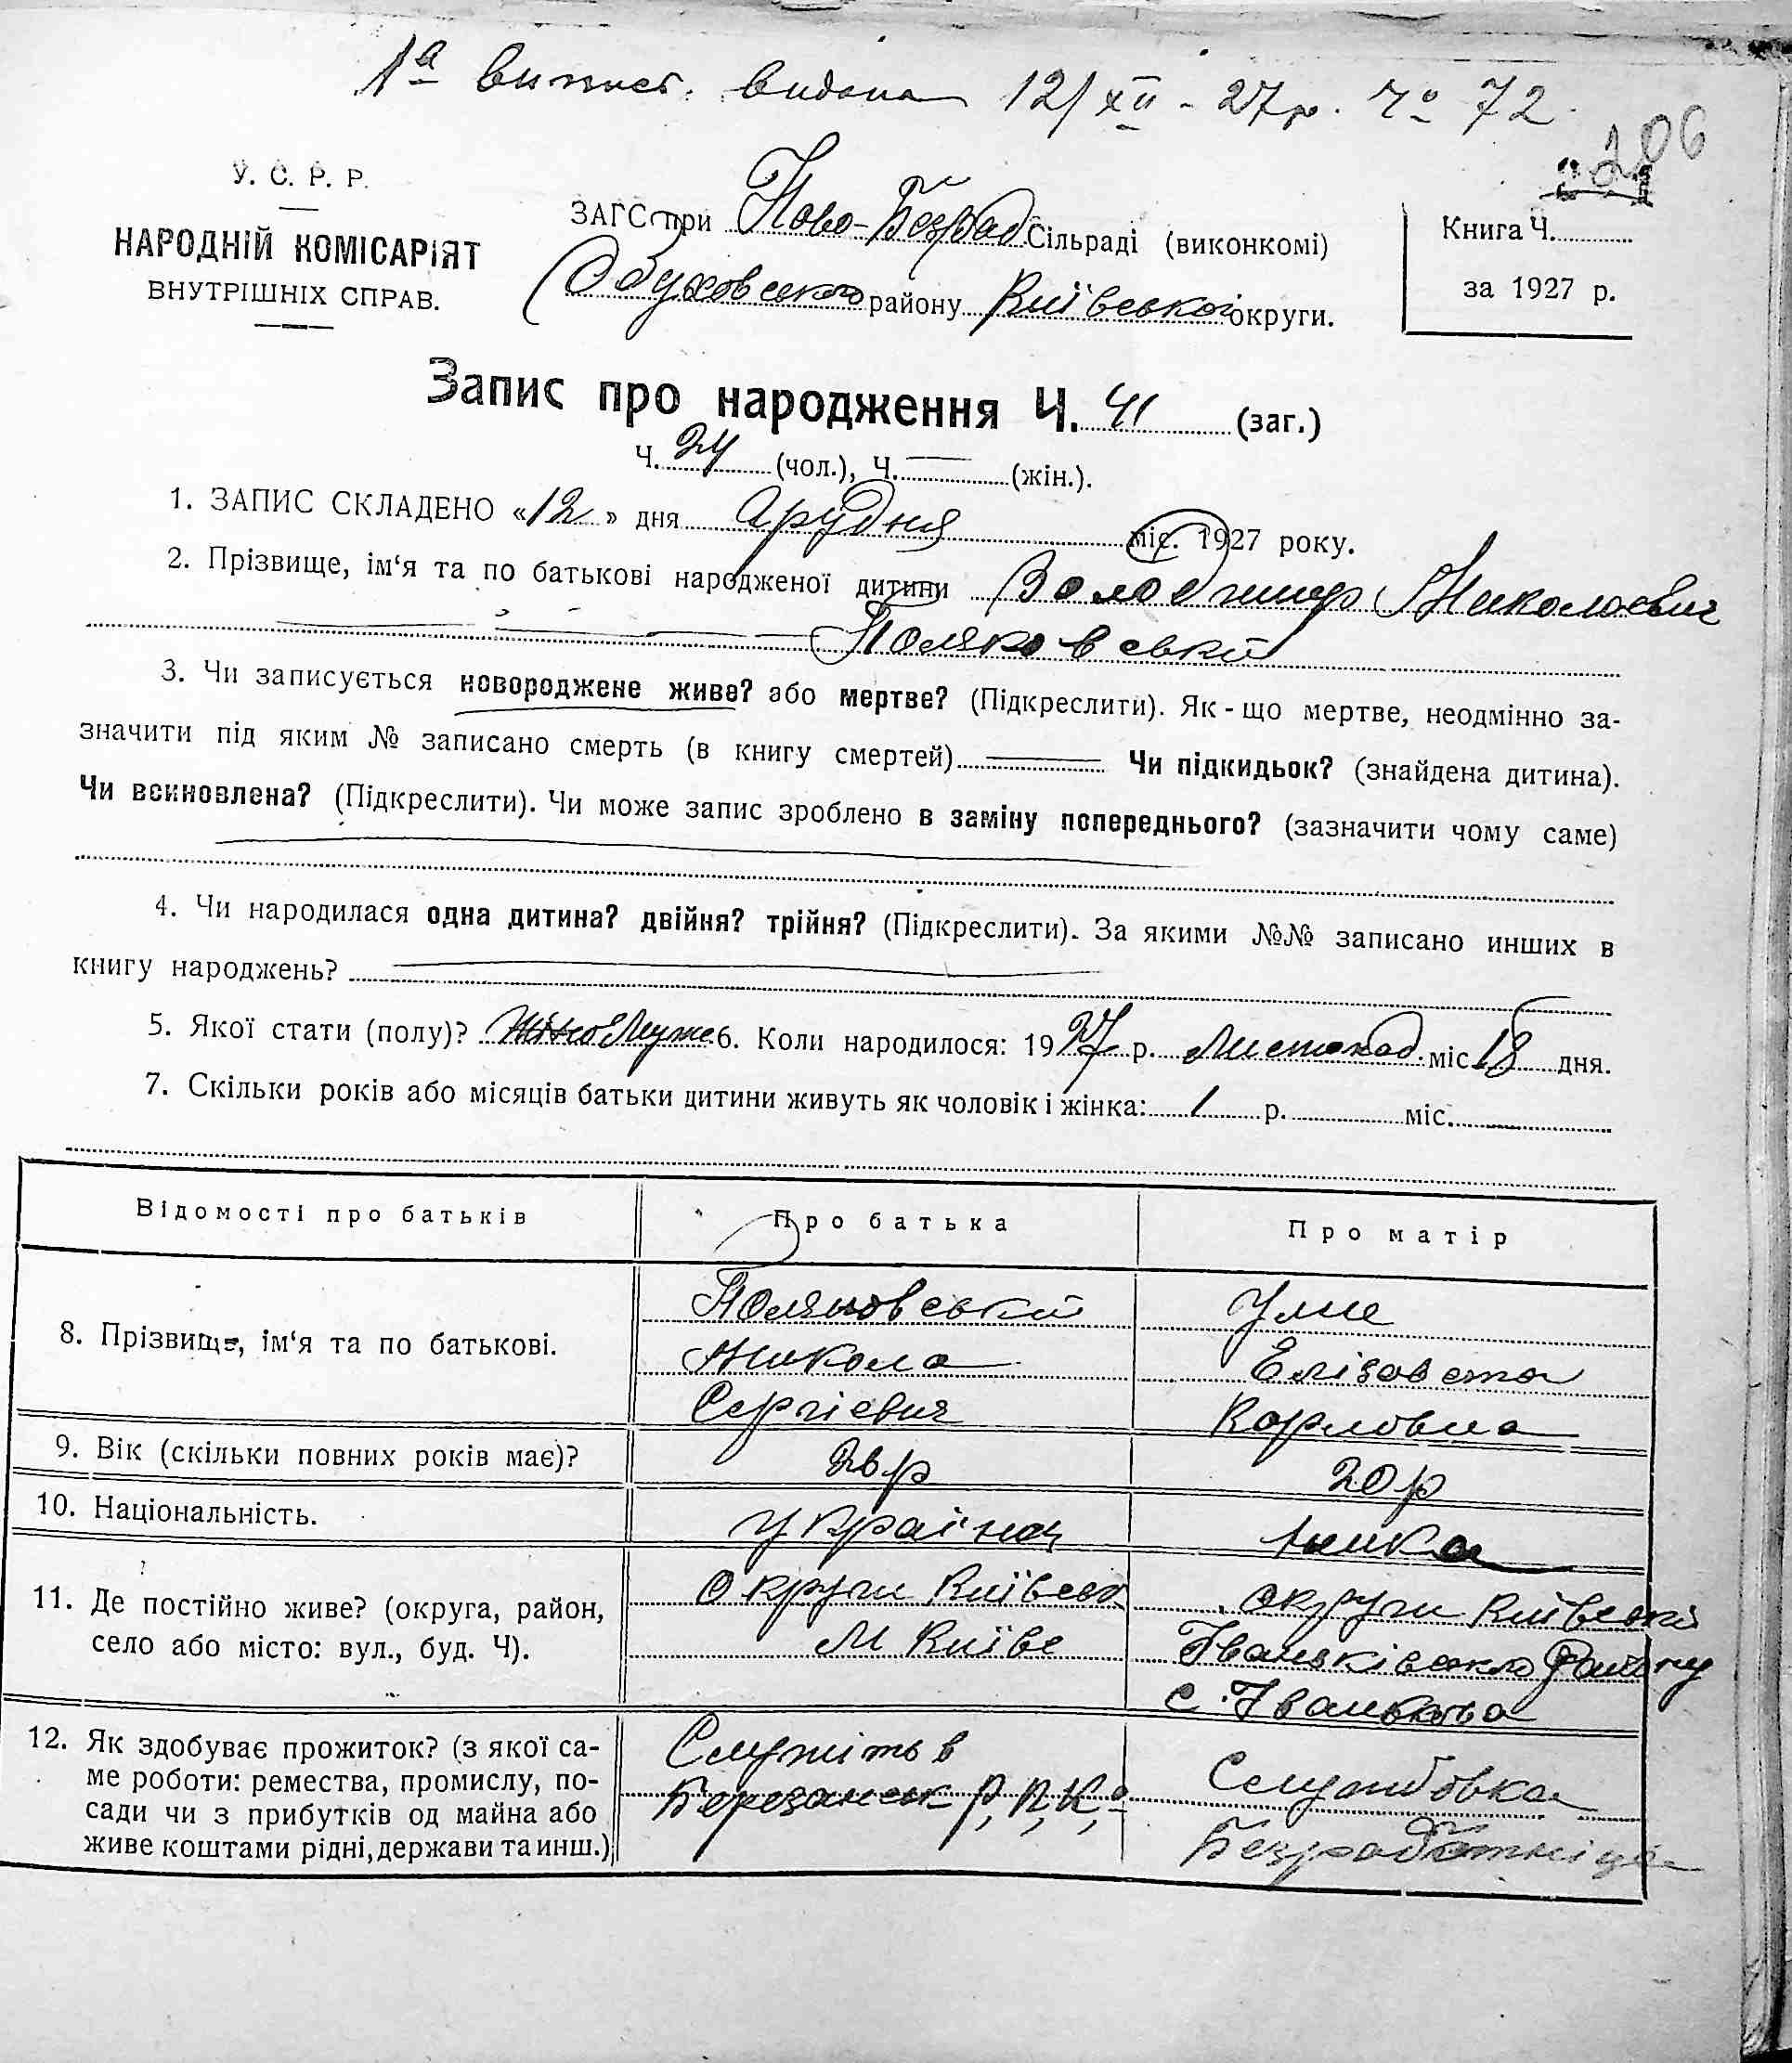 1а випис. видана 12/XII - 27р. Ч° 72.
206
У. С. Р. Р.
НАРОДНІЙ КОМІСАРІЯТ
ВНУТРІШНІХ СПРАВ.
ЗАГС при Ново-Безрад Сільраді (виконкомі)
Обуховського району Київської округи.
Книга Ч.
за 1927 р.
Запис про народження Ч. 41 (заг.)
Ч. 24 (чол.), Ч. — (жін.).
1. ЗАПИС СКЛАДЕНО «12» дня Грудня міс. 1927 року.
2. Прізвище, ім‘я та по батькові народженої дитини Володимир Миколаєвич
Поляковській
3. Чи записується новороджене живе? або мертве? (Підкреслити). Як-що мертве, неодмінно за-
значити під яким № записано смерть (в книгу смертей) — Чи підкидьок? (знайдена дитина).
Чи всиновлена? (Підкреслити). Чи може запис зроблено в заміну попереднього? (зазначити чому саме)
4. Чи народилася одна дитина? двійня? трійня? (Підкреслити). За якими №№ записано инших в
книгу народжень?
5. Якої стати (полу)? Муже 6. Коли народилося: 1927 р. Листопад. міс. 18 дня.
7. Скільки років або місяців батьки дитини живуть як чоловік і жінка: 1 р. міс.
Відомості про батьків Про батька Про матір
8. Прізвище, ім‘я та по батькові.
Поляковській
Микола
Сергієвич
Ульє
Елізавета
Карловна
9. Вік (скільки повних років має)? 26 р 20 р
10. Національність. Українец
11. Де постійно живе? (округа, район,
село або місто: вул., буд. Ч).
Округи Київськ
М Київе
округи Київські
Іваньківського Району
с. Іванькова
12. Як здобуває прожиток? (з якої са-
ме роботи: ремества, промислу, по-
сади чи з прибутків од майна або
живе коштами рідні, держави та инш.)
Служіть в
Березанськ Р, П, К,
Службовка
Безработніця